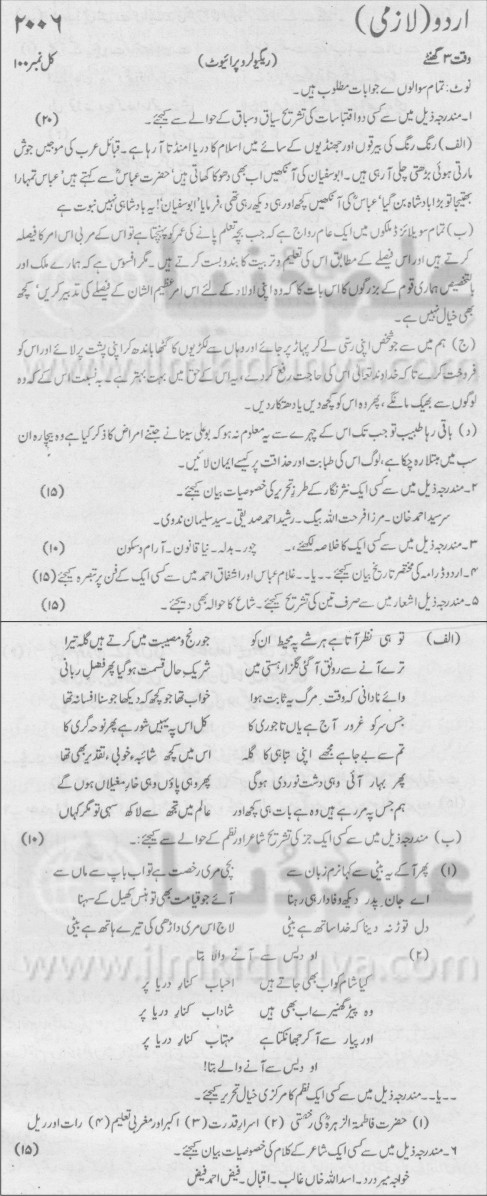 اردو (لازمی) ۲۰۰۶
وقت ۳ گھنٹے (ریگولر و پرائیوٹ) کل نمبر ۱۰۰
نوٹ: تمام سوالوں کے جوابات مطلوب ہیں۔
۱۔ مندرجہ ذیل میں سے کسی دو اقتباسات کی تشریح سیاق و سباق کے حوالے سے کیجئے۔ (۲۰)
(الف) رنگ رنگ کی بیرقوں اور جھنڈیوں کے سائے میں اسلام کا دریا امنڈتا آرہا ہے۔ قبائل عرب کی موجیں جوش
مارتی ہوئی بڑھتی چلی آرہی ہیں۔ ابوسفیان کی آنکھیں اب بھی دھوکا کھاتی ہیں‘ حضرت عباسؓ سے کہتے ہیں ’عباس تمہارا
بھتیجا تو بڑا بادشاہ بن گیا‘ عباسؓ کی آنکھیں کچھ اور ہی دیکھ رہی تھی، فرمایا ’ابوسفیان! یہ بادشاہی نہیں نبوت ہے
(ب) تمام سویلائزڈ ملکوں میں ایک عام رواج ہے کہ جب بچہ تعلیم پانے کی عمر کو پہنچتا ہے تو اس کے مربی اس امر کا فیصلہ
کرتے ہیں اور اس فیصلے کے مطابق اس کی تعلیم و تربیت کا بندوبست کرتے ہیں۔ مگر افسوس ہے کہ ہمارے ملک اور
بالتخصیص ہماری قوم کے بزرگوں کا اس بات کا کہ وہ اپنی اولاد کے لئے اس امر عظیم الشان کے فیصلے کی تدبیر کریں‘ کچھ
بھی خیال نہیں ہے۔
(ج) ہم میں سے جو شخص اپنی رسی لے کر پہاڑ پر جائے اور وہاں سے لکڑیوں کا گٹھا باندھ کر اپنی پشت پر لائے اور اس کو
فروخت کرے تا کہ خداوند تعالیٰ اس کی حاجت رفع کر دے، یہ اس کے حق میں بہت بہتر ہے۔ بہ نسبت اس کے کہ وہ
لوگوں سے بھیک مانگے، پھر وہ اس کو کچھ دیں یا دھتکار دیں۔
(د) باقی رہا طبیب تو جب تک اس کے چہرے سے یہ معلوم نہ ہو کہ بوعلی سینا نے جتنے امراض کا ذکر کیا ہے وہ بیچارہ ان
سب میں مبتلا رہ چکا ہے، لوگ اس کی طبابت اور حذاقت پر کیسے ایمان لائیں۔
۲۔ مندرجہ ذیل میں سے کسی ایک نثر نگار کے طرزِ تحریر کی خصوصیات بیان کیجئے۔ (۱۵)
سر سید احمد خان۔ مرزا فرحت اللہ بیگ۔ رشید احمد صدیقی۔ سید سلیمان ندوی۔
۳۔ مندرجہ ذیل میں سے کسی ایک کا خلاصہ لکھئے۔ چور۔ بدلہ۔ نیا قانون۔ آرام و سکون (۱۰)
۴۔ اردو ڈرامہ کی مختصر تاریخ بیان کیجئے۔۔ یا۔۔ غلام عباس اور اشفاق احمد میں سے کسی ایک کے فن پر تبصرہ کیجئے (۱۵)
۵۔ مندرجہ ذیل اشعار میں سے صرف تین کی تشریح کیجئے۔ شاعر کا حوالہ بھی دیجئے۔ (۱۵)
(الف) تو ہی نظر آتا ہے ہر شے پہ محیط ان کو جو رنج و مصیبت میں کرتے ہیں گلہ تیرا
ترے آنے سے رونق آگئی گلزار ہستی میں شریک حال قسمت ہو گیا پھر فضل ربانی
وائے نادانی کہ وقت مرگ یہ ثابت ہوا خواب تھا جو کچھ کہ دیکھا جو سنا افسانہ تھا
جس سر کو غرور آج ہے یاں تاجوری کا کل اس پہ یہیں شور ہے پھر نوحہ گری کا
تم سے بے جا ہے مجھے اپنی تباہی کا گلہ اس میں کچھ شائبہ خوبی تقدیر بھی تھا
پھر بہار آئی وہی دشت نوردی ہوگی پھر وہی پاؤں وہی خار مغیلاں ہوں گے
ہم جس پہ مر رہے ہیں وہ ہے بات ہی کچھ اور عالم میں تجھ سے لاکھ سہی تو مگر کہاں
(ب) مندرجہ ذیل میں سے کسی ایک جز کی تشریح شاعر اور نظم کے حوالے سے کیجئے:۔ (۱۰)
(۱) پھر آکے یہ بیٹی سے کہا نرم زبان سے بچی مری رخصت ہے تو اب باپ سے ماں سے
اے جان پدر دیکھ وفادار ہی رہنا آئے جو قیامت بھی تو ہنس کھیل کے سہنا
دل توڑ نہ دینا کہ خدا ساتھ ہے بیٹی لاج اس مری داڑھی کی ترے ہاتھ ہے بیٹی
(۲) او دیس سے آنے والا بتا
کیا شام کو اب بھی جاتے ہیں احباب کنار دریا پر
وہ پیڑ گھنیرے اب بھی ہیں شاداب کنار دریا پر
اور پیار سے آکر جھانکتا ہے مہتاب کنار دریا پر
او دیس سے آنے والے بتا!
۔۔ یا۔۔ مندرجہ ذیل میں سے کسی ایک نظم کا مرکزی خیال تحریر کیجئے۔
(۱) حضرت فاطمۃ الزہرہؓ کی رخصتی (۲) اسرار قدرت (۳) اکبر اور مغربی تعلیم (۴) رات اور ریل
۶۔ مندرجہ ذیل میں سے کسی ایک شاعر کے کلام کی خصوصیات بیان کیجئے۔ (۱۵)
خواجہ میر درد۔ اسد اللہ خاں غالب۔ اقبال۔ فیض احمد فیض
علم کی دنیا
www.ilmkidunya.com